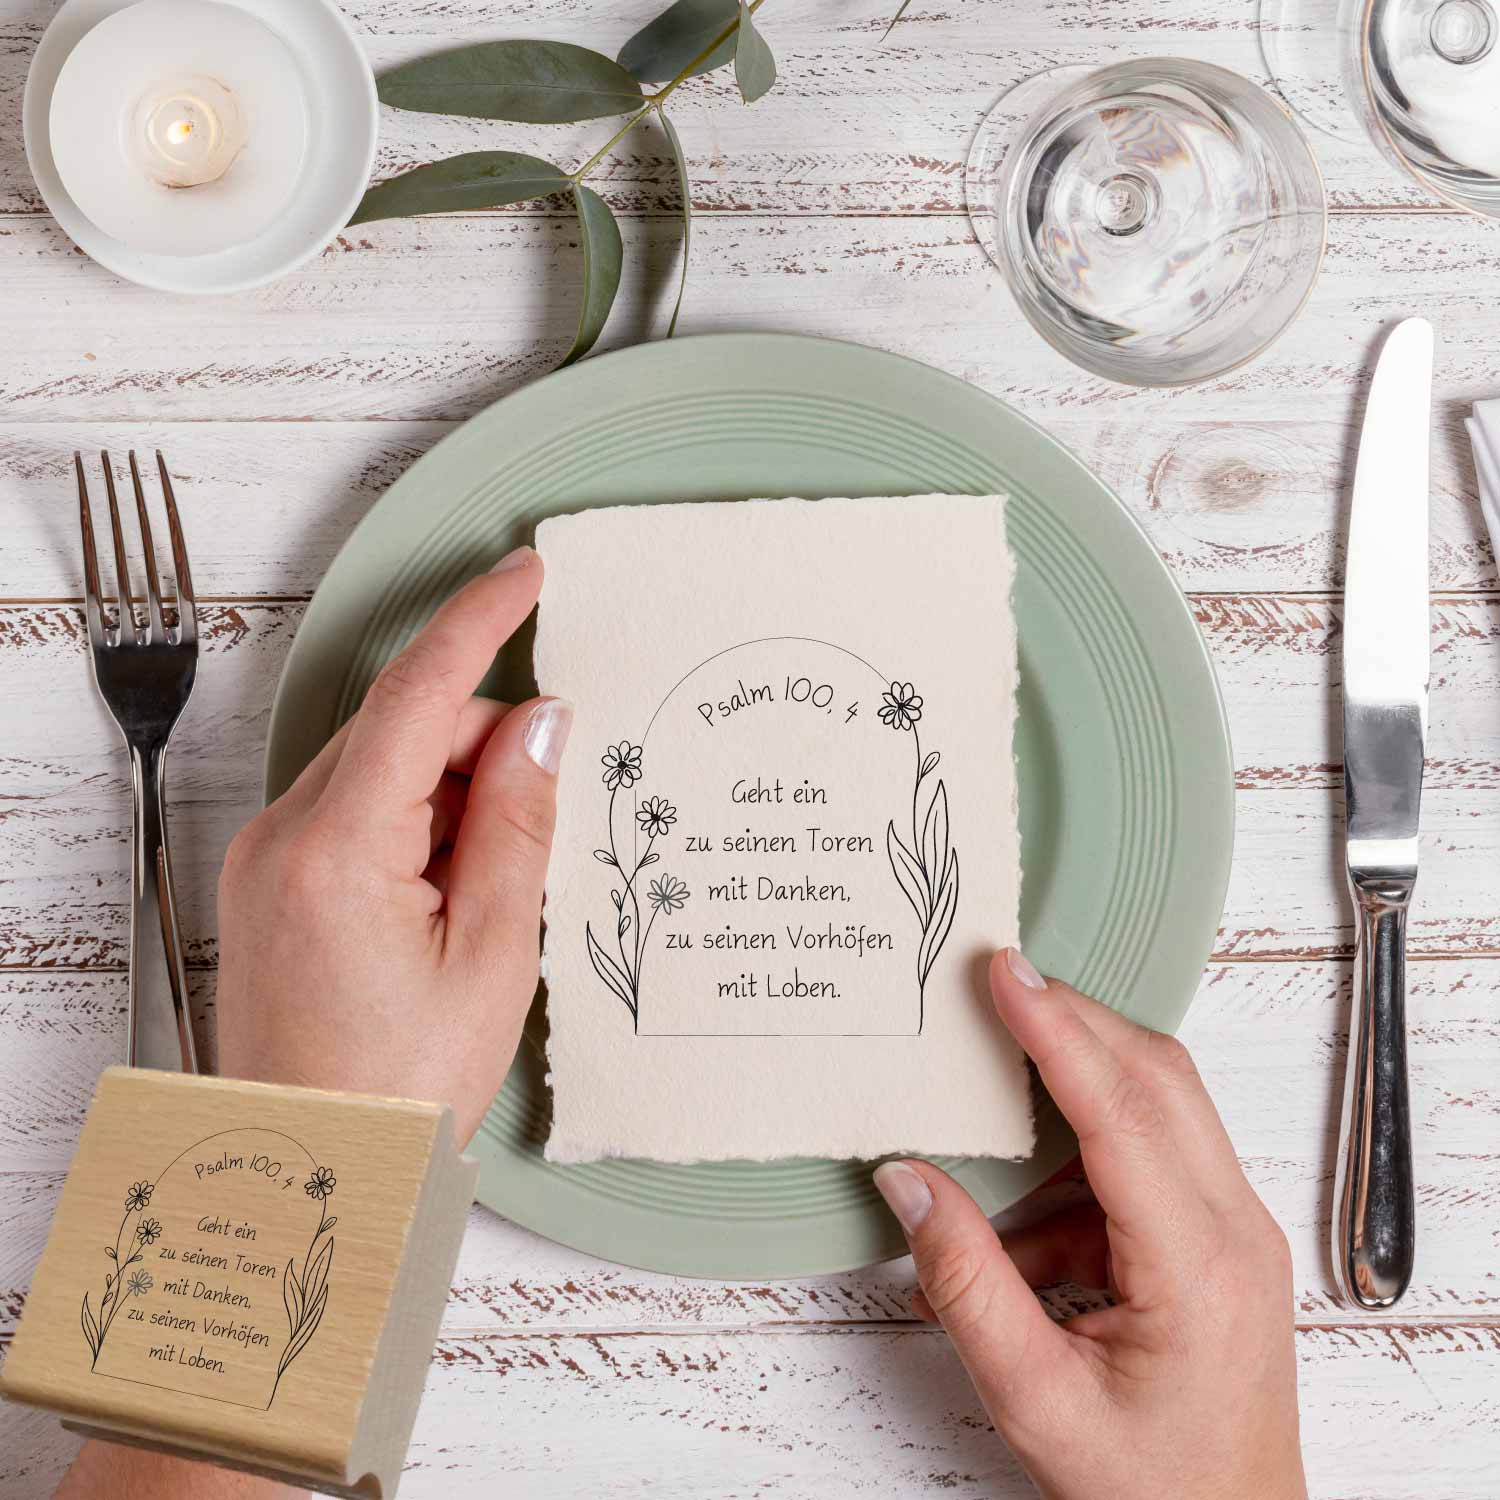 Psalm 100, 4
Geht ein
zu seinen Toren
mit Danken,
zu seinen Vorhöfen
mit Loben.
Psalm 100, 4
Geht ein
zu seinen Toren
mit Danken,
zu seinen Vorhöfen
mit Loben.